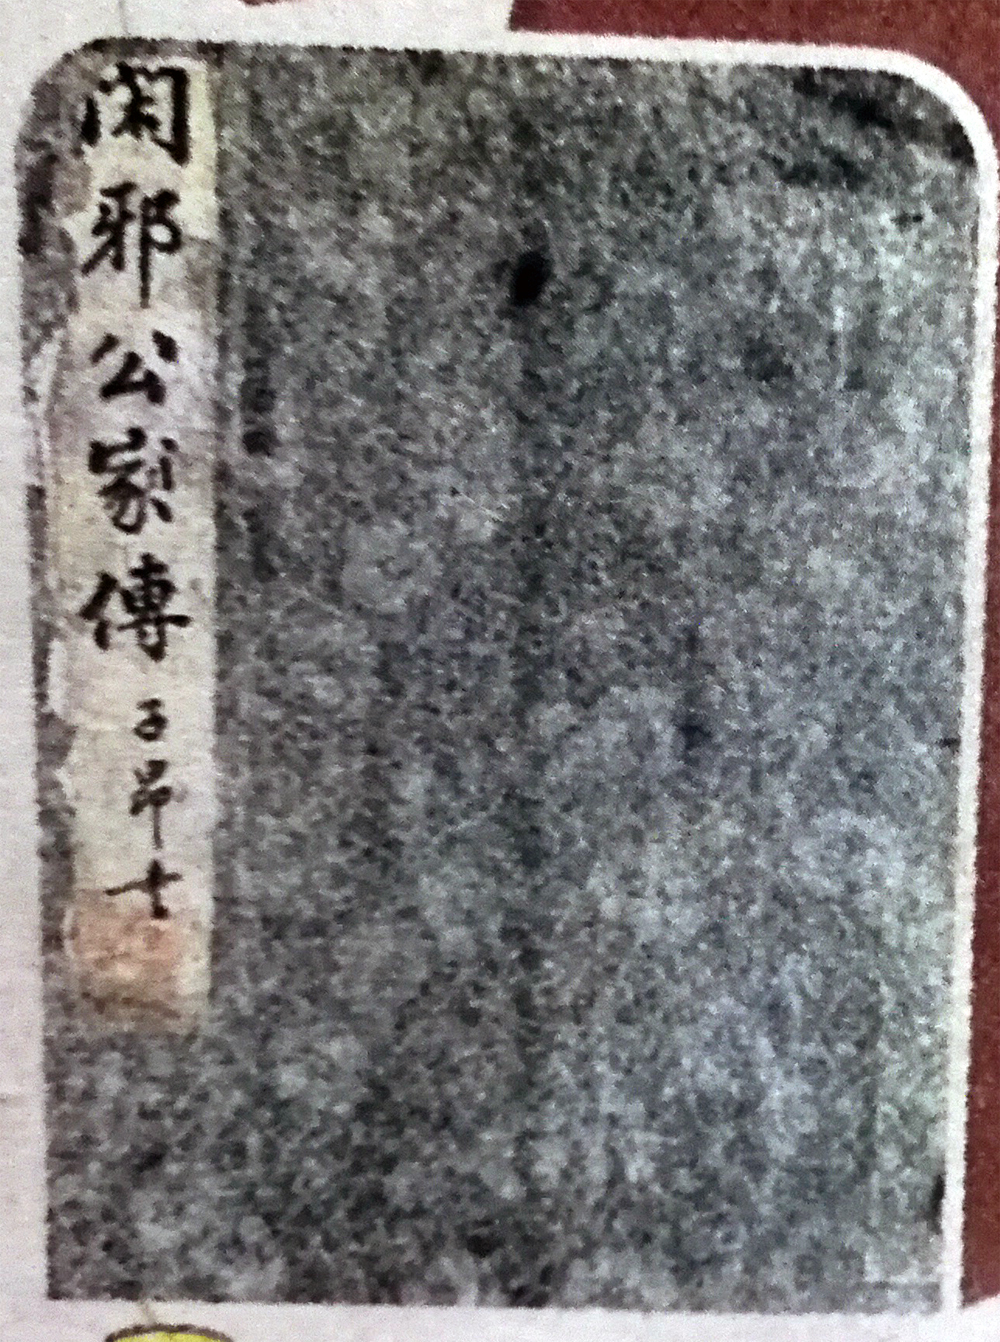 閑邪公家傳 子昂